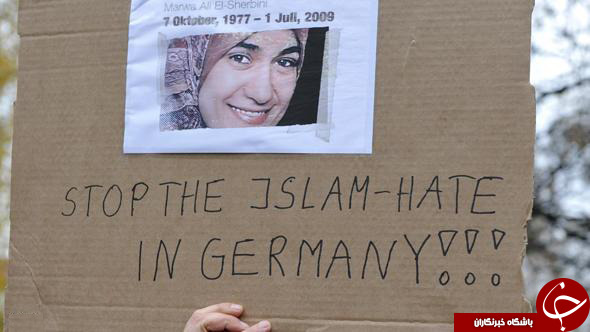 Marwa Ali El-Sherbini
7 Oktober, 1977 – 1 Juli, 2009
STOP THE ISLAM-HATE
IN GERMANY!!!
باشگاه خبرنگاران